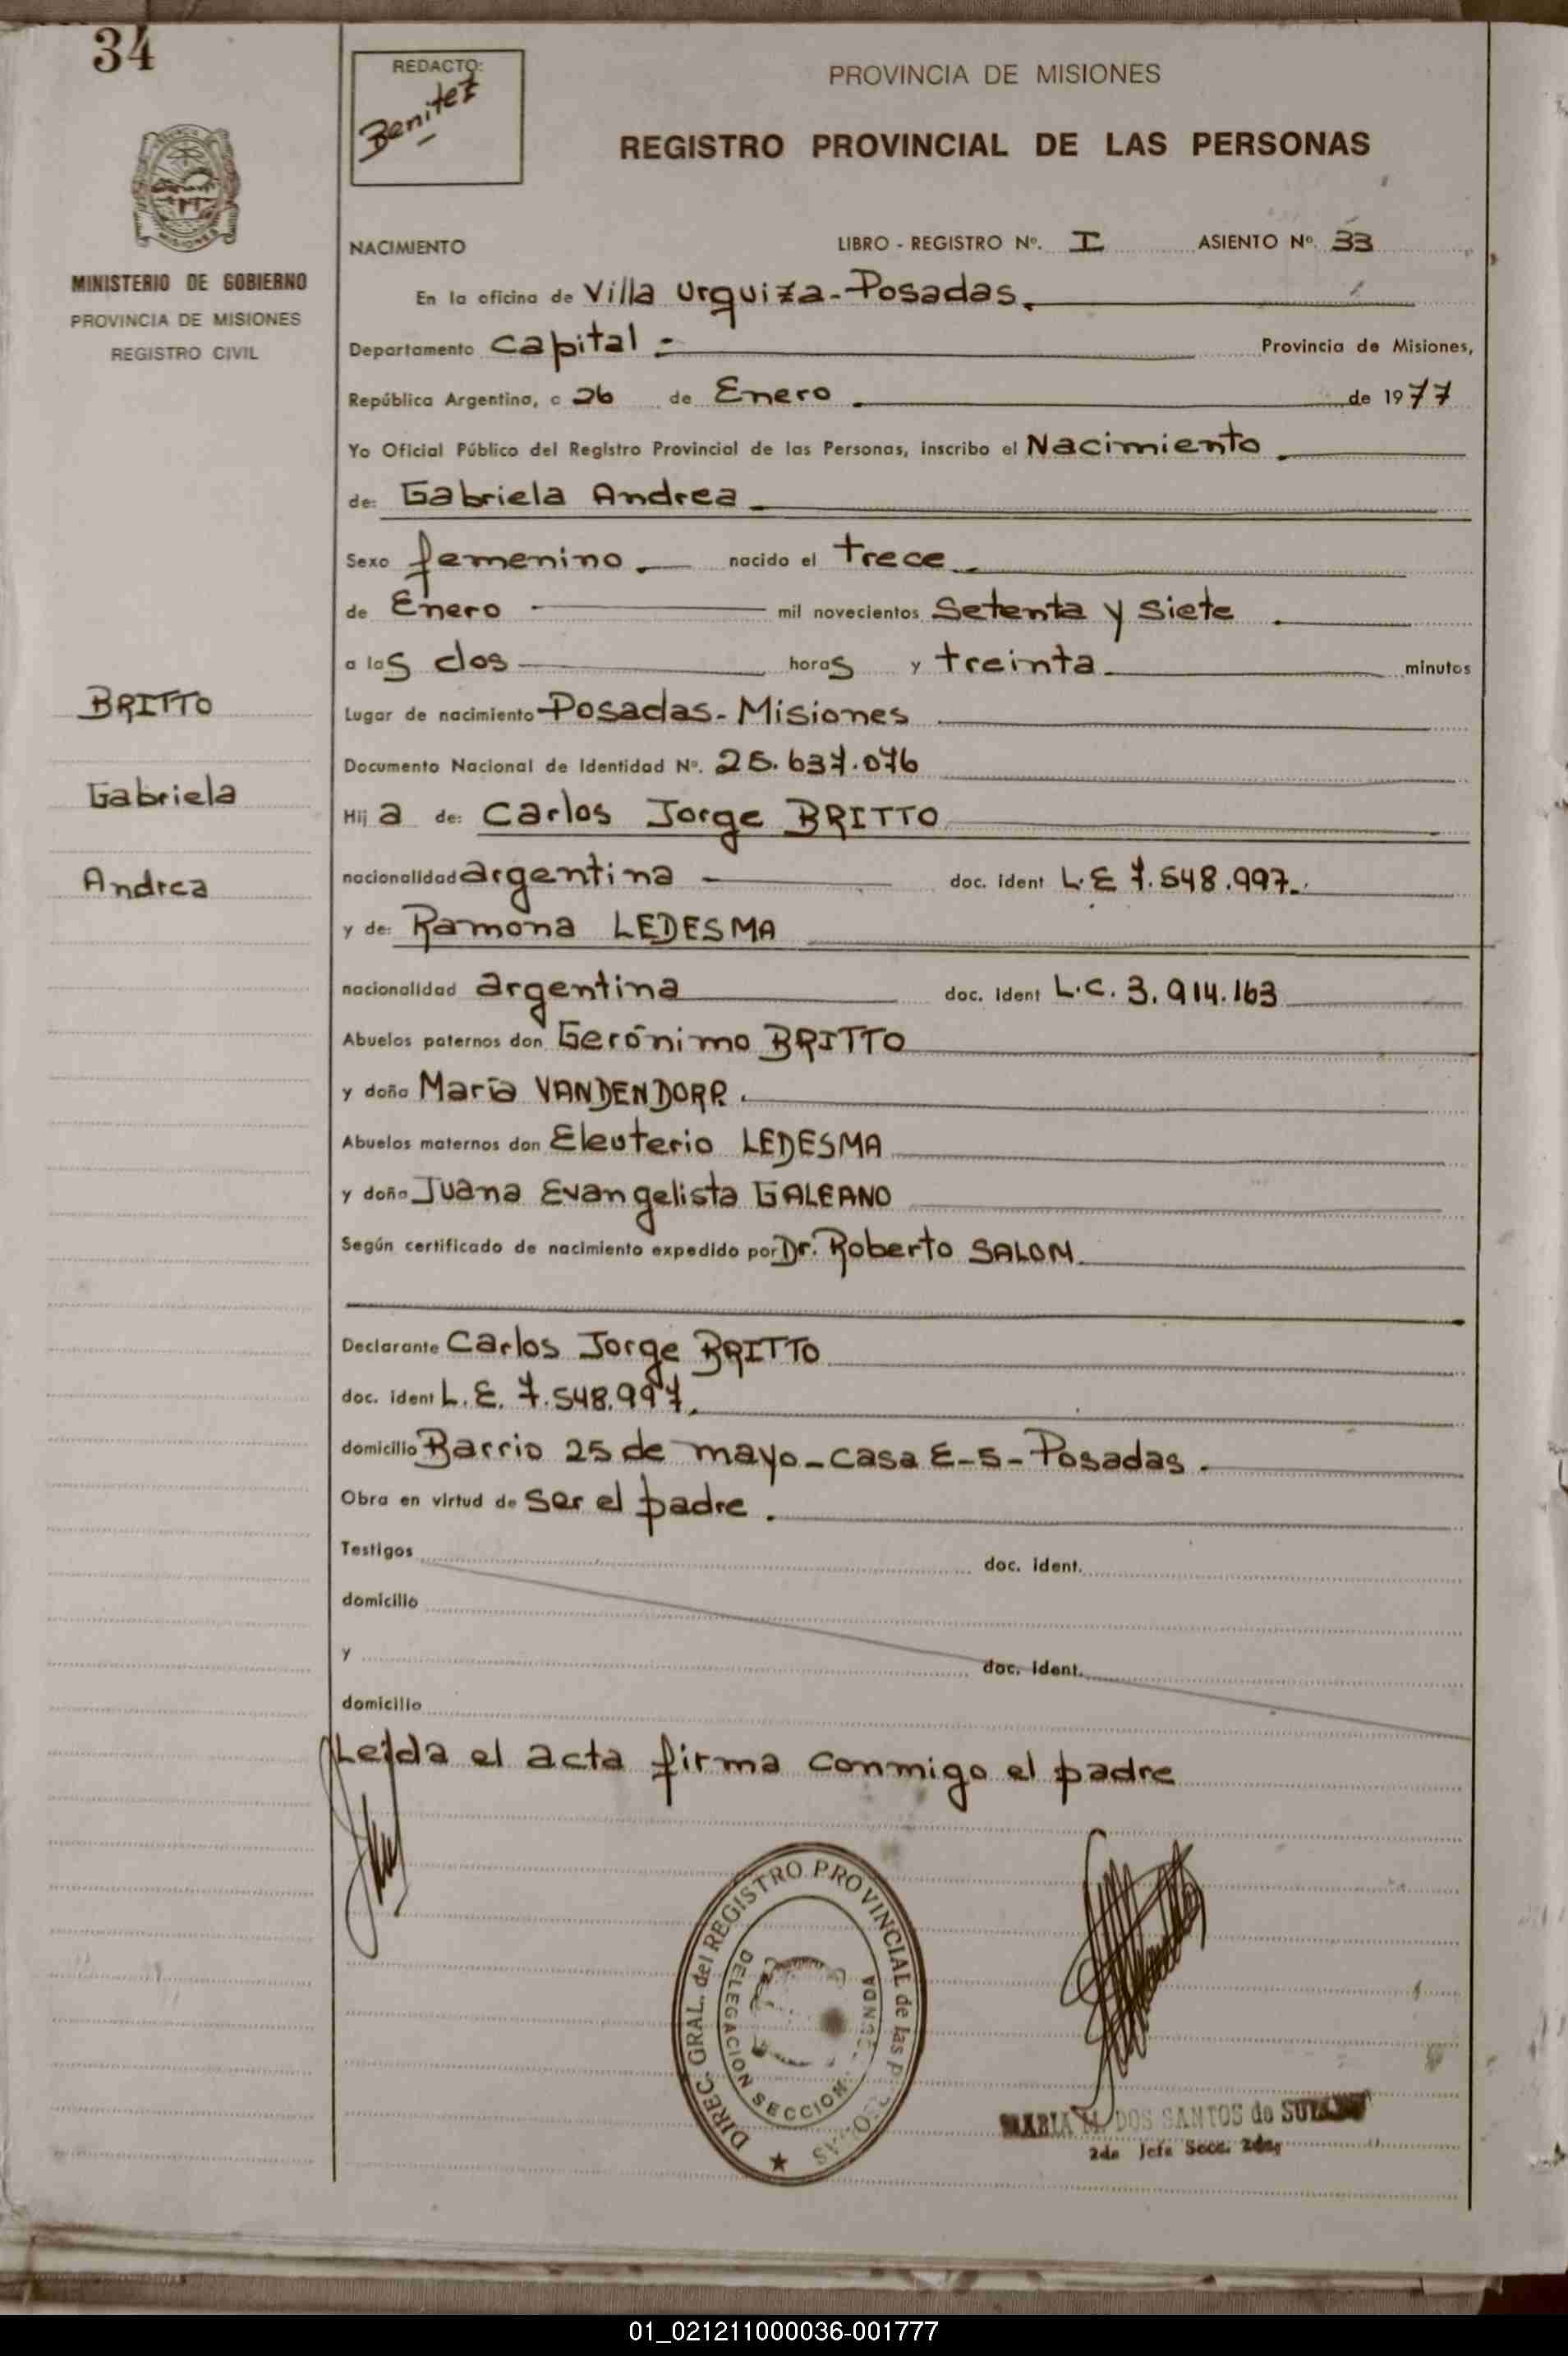 34
MINISTERIO DE GOBIERNO
PROVINCIA DE MISIONES
REGISTRO CIVIL
BRITTO
Gabriela
Andrea
REDACTO:
Benitez
PROVINCIA DE MISIONES
REGISTRO PROVINCIAL DE LAS PERSONAS
NACIMIENTO LIBRO - REGISTRO Nº. I ASIENTO Nº. 33
En la oficina de Villa Urquiza - Posadas.
Departamento Capital - Provincia de Misiones,
República Argentina, a 26 de Enero de 1977
Yo Oficial Público del Registro Provincial de las Personas, inscribo el Nacimiento
de: Gabriela Andrea
Sexo femenino. nacido el trece
de Enero mil novecientos Setenta y siete
a las dos horas y treinta minutos
Lugar de nacimiento Posadas - Misiones
Documento Nacional de Identidad Nº. 25.637.076
Hija de: Carlos Jorge BRITTO
nacionalidad argentina doc. ident L.E 7.548.997
y de: Ramona LEDESMA
nacionalidad argentina doc. ident L.C. 3.914.163
Abuelos paternos don Gerónimo BRITTO
y doña María VANDENDORP.
Abuelos maternos don Eleuterio LEDESMA
y doña Juana Evangelista GALEANO
Según certificado de nacimiento expedido por Dr. Roberto SALOM
Declarante Carlos Jorge BRITTO
doc. ident L.E. 7.548.997
domicilio Barrio 25 de mayo - casa E-5 - Posadas.
Obra en virtud de ser el padre.
Testigos doc. ident.
domicilio
y doc. ident.
domicilio
Leída el acta firma conmigo el padre
DIREC. GRAL. del REGISTRO PROVINCIAL de las
DELEGACION SECCION
MARIA M. DOS SANTOS de
2da Jefe Secc. 2da.
01_021211000036-001777